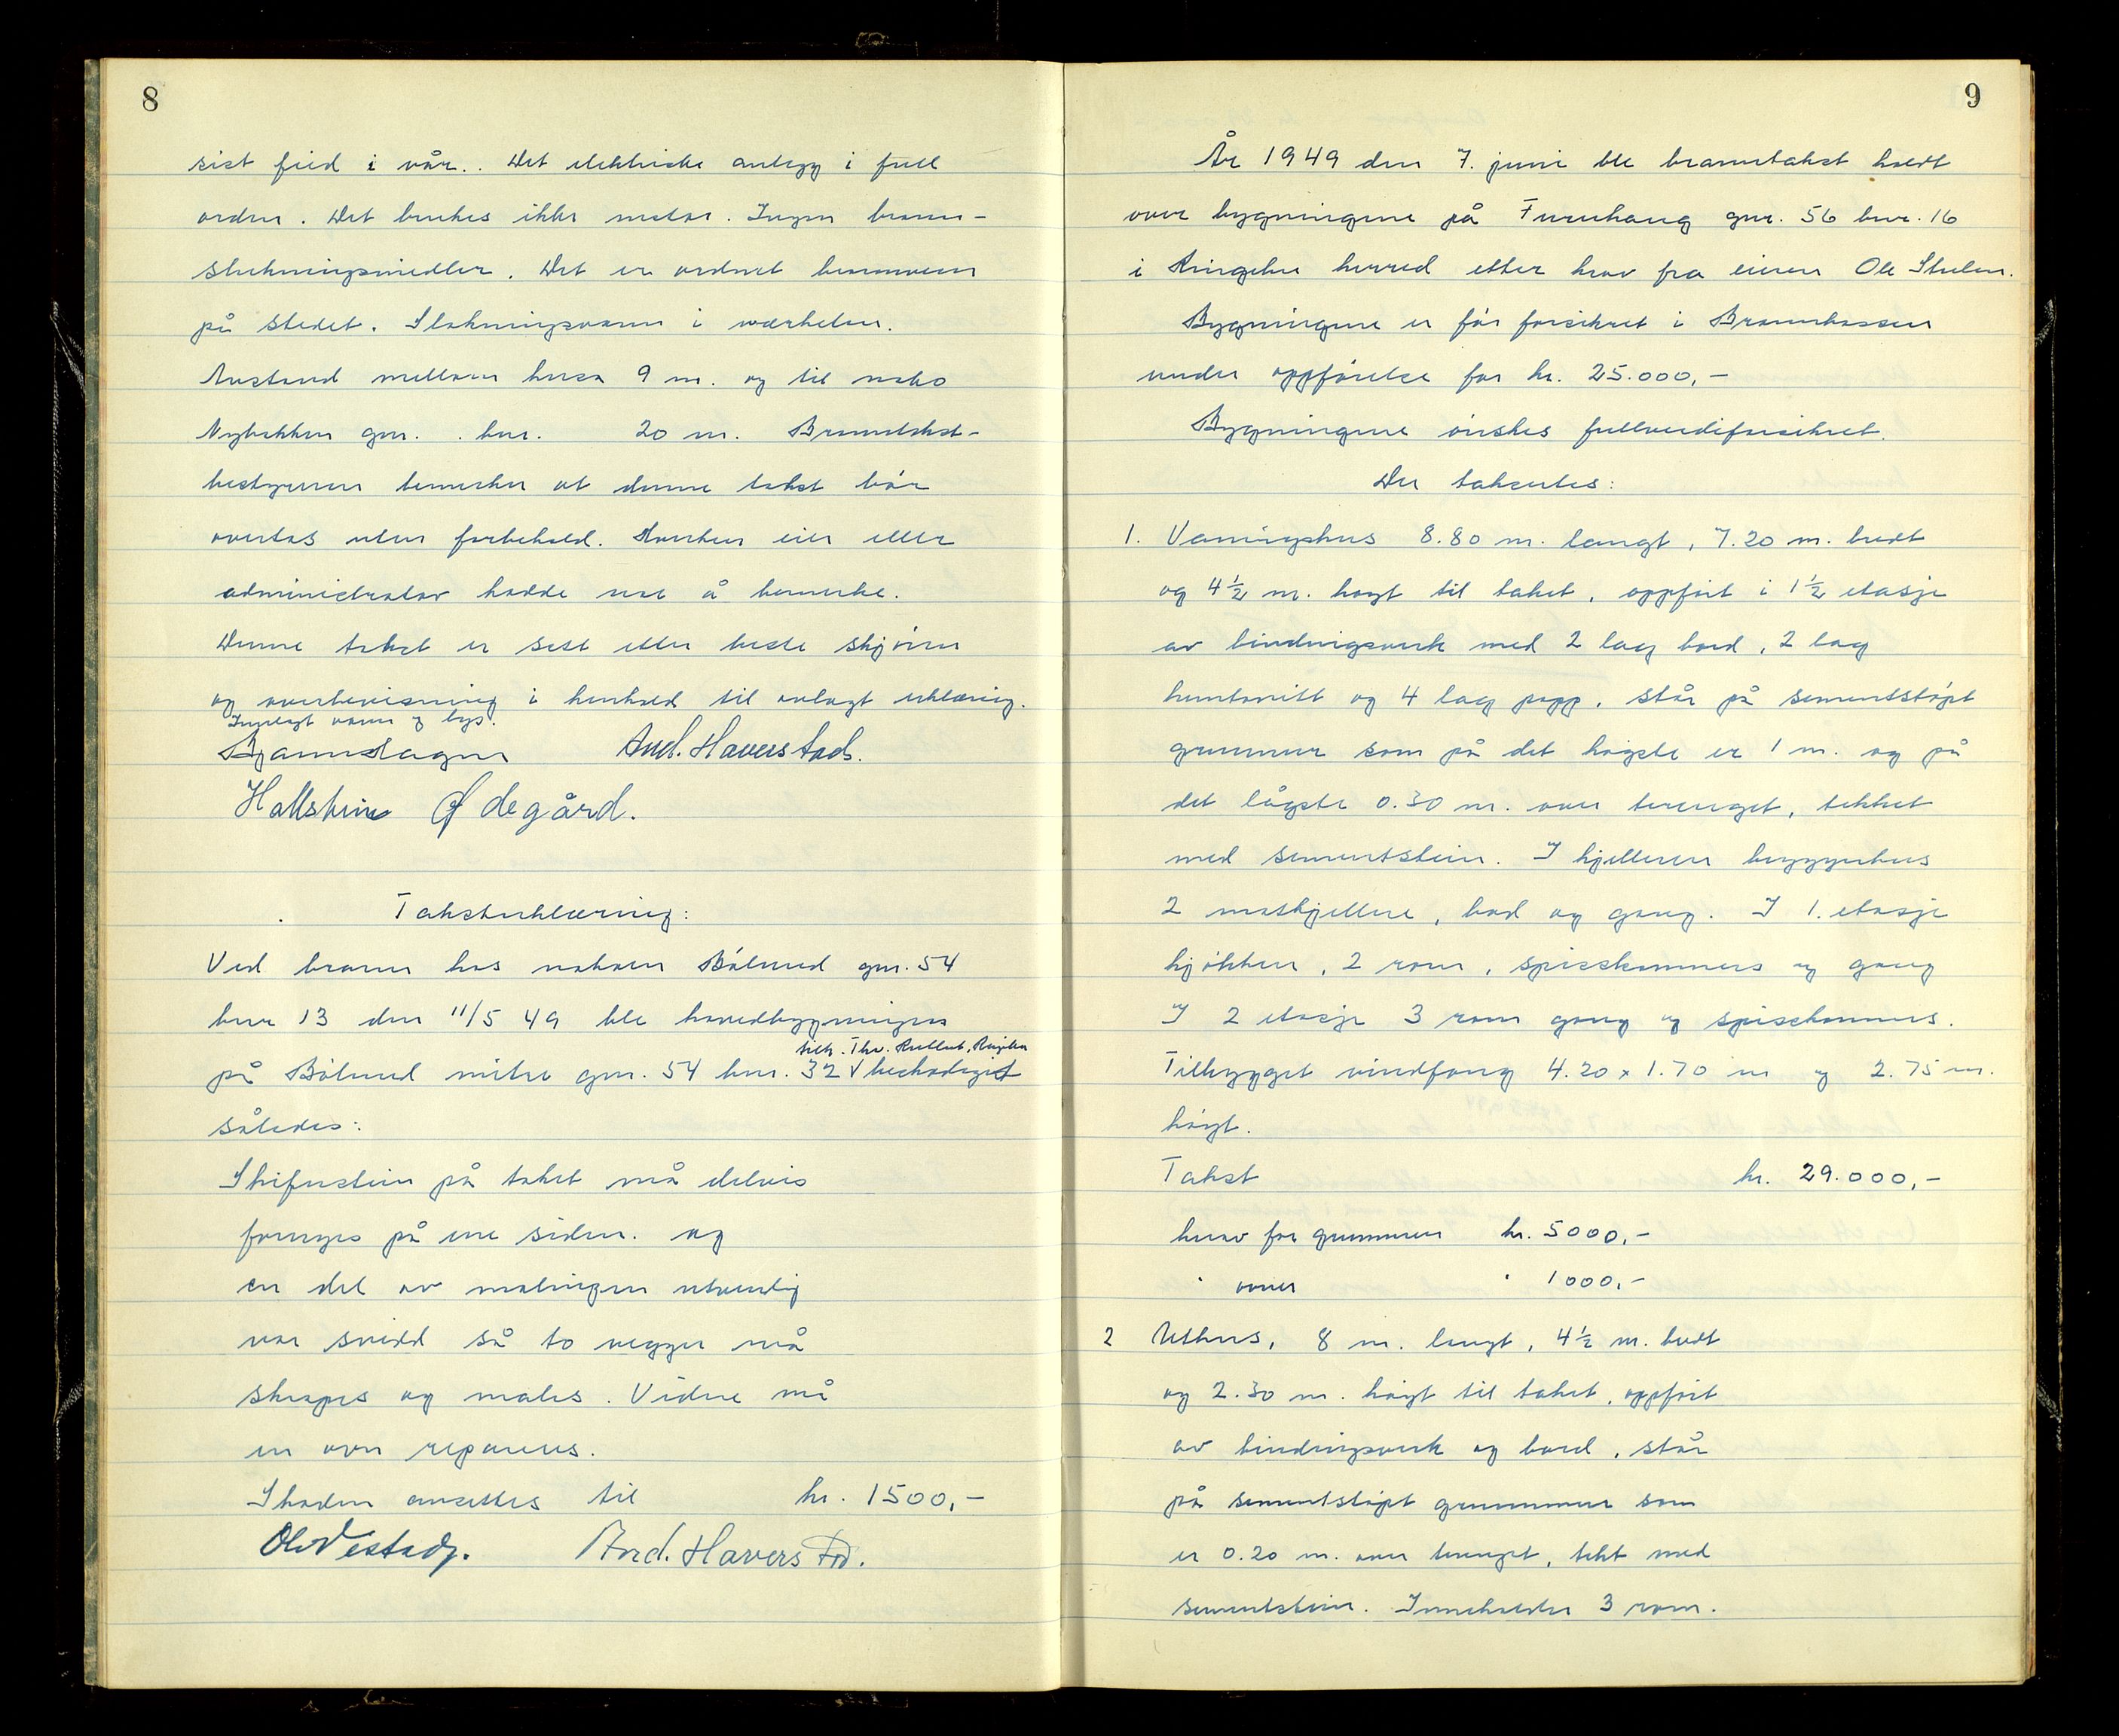 8
sist feid i vår.. Det elektriske anlegg i full
orden. Det brukes ikke motor. Ingen brann-
slukningsmedler. Det er ordnet brannvern
på stedet. Slokningsvann i nærheten.
Avstand mellom husa 9 m. og til nabo
Nybakken gnr. . bnr. 20 m. Branntakst-
bestyreren bemerker at denne takst bør
overtas uten forbehold. Hverken eier eller
administrator hadde noe å bemerke.
Denne takst er sett etter beste skjønn
og overbevisning i henhold til avlagt erklæring.
Innlagt vann og lys.
And. Haverstad.
Hallstein Ødegård.
Taksterklæring:
Ved brann hos naboen Bölund gnr. 54
bnr 13 den 11/5 49 ble hovedbygningen
tilh. Thv. Ringebu
på Bölund mitre gnr. 54 bnr. 32 V beskadiget
således:
Skiferstein på taket må delvis
fornyes på ene siden. og
en del av malingen utvendig
var svidd så to vegger må
skrapes og males. Videre må
en ovn repareres.
Skaden ansettes til kr. 1500,-
Ole Vestady. And. Haverstad.
9
År 1949 den 7. juni ble branntakst holdt
over bygningene på Furuhaug gnr. 56 bnr. 16
i Ringebu herred etter krav fra eieren Ole Stulen.
Bygningene er før forsikret i Brannkassen
under oppførelse for kr. 25.000,-
Bygningene ønskes fullverdiforsikret.
Der takseertes:
1. Vaningshus 8.80 m. langt, 7.20 m. bredt
og 4½ m. høgt til taket, oppført i 1½ etasje
av bindingsverk med 2 lag bord, 2 lag
huntonitt og 4 lag papp, står på sementstøpt
grunnmur som på det høgste er 1 m. og på
det lågste 0.30 m. over terrenget, tekket
med sementstein. I kjelleren bryggerhus
2 matkjellere, bad og gang. I 1. etasje
kjøkken, 2 rom, spisekammers og gang
I 2 etasje 3 rom gang og spisekammers.
Tilbygget vindfang 4.20 x 1.70 m og 2.75 m.
høgt.
Takst kr. 29.000,-
hvorav for grunnmuren kr. 5000,-
" ovner " 1000,-
2 Uthus, 8 m. langt, 4½ m. bredt
og 2.30 m. høgt til taket, oppført
av bindingsverk og bord, står
på sementstøpt grunnmur som
er 0.20 m. over terrenget, tekt med
sementstein. Inneholder 3 rom.